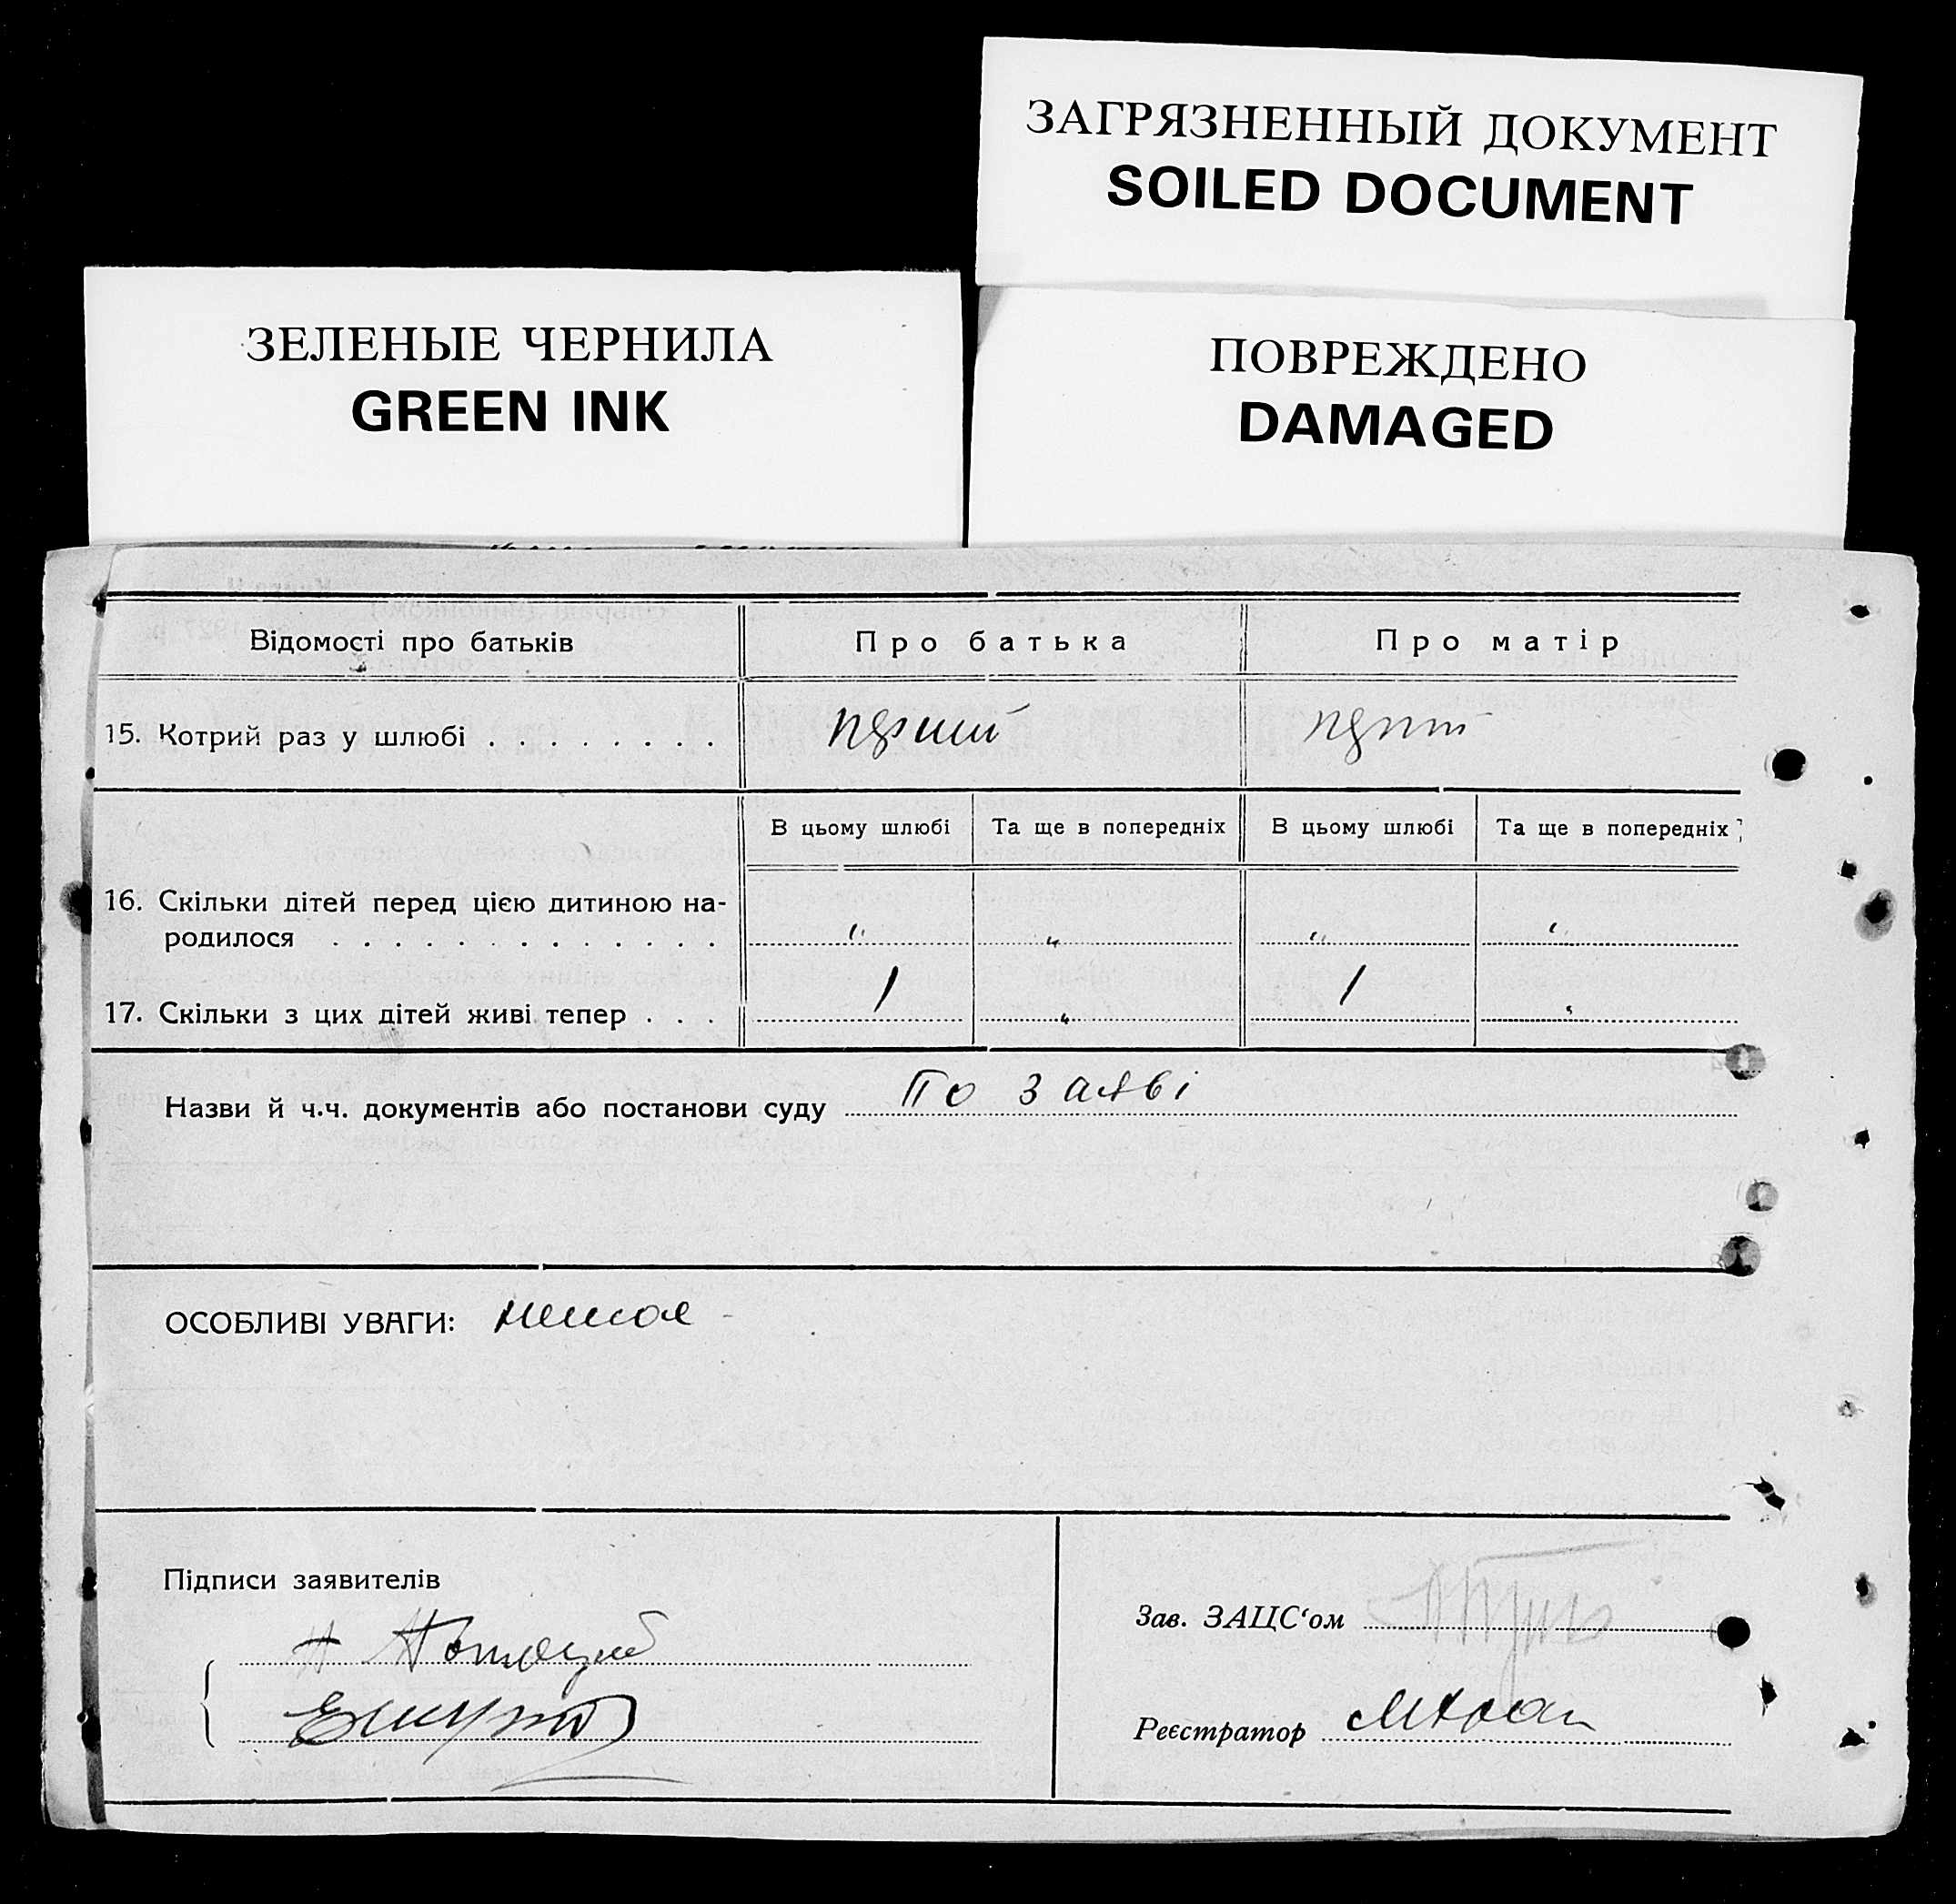 ЗАГРЯЗНЕННЫЙ ДОКУМЕНТ
SOILED DOCUMENT
ЗЕЛЕНЫЕ ЧЕРНИЛА
GREEN INK
ПОВРЕЖДЕНО
DAMAGED
Відомості про батьків Про батька Про матір
15. Котрий раз у шлюбі . . . . . . . . перший
В цьому шлюбі Та ще в попередніх В цьому шлюбі Та ще в попередніх
16. Скільки дітей перед цією дитиною на-
родилося . . . . . . . . . . . . . " " " "
17. Скільки з цих дітей живі тепер . . . 1 " 1 "
Назви й ч.ч. документів або постанови суду По заяві
ОСОБЛИВІ УВАГИ: немає -
Підписи заявителів
Зав. ЗАЦС‘ом
Реєстратор